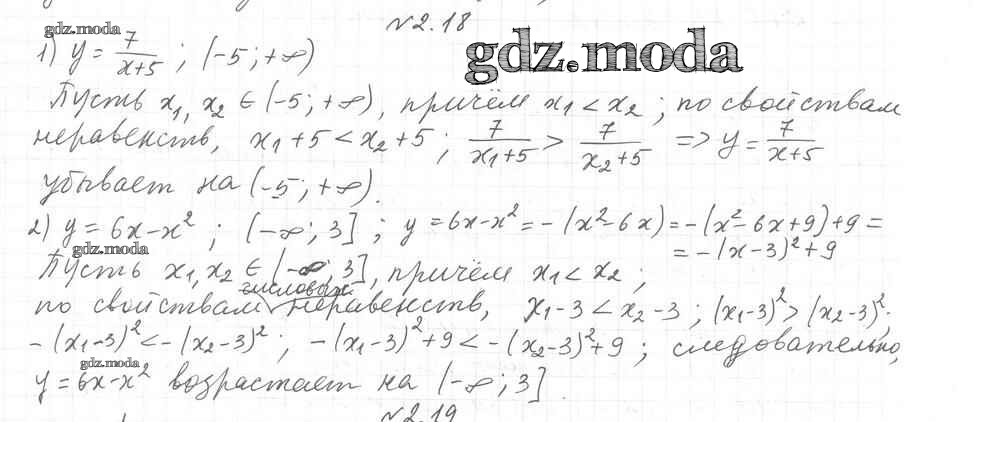 №2.18
gdz.moda
gdz.moda
1) y = 7/(x+5) ; (-5; +∞)
Пусть x₁, x₂ ∈ (-5; +∞), причём x₁ < x₂ ; по свойствам
неравенств, x₁+5 < x₂+5 ; 7/(x₁+5) > 7/(x₂+5) => y = 7/(x+5)
убывает на (-5; +∞).
2) y = 6x-x² ; (-∞; 3] ; y = 6x-x² = -(x²-6x) = -(x²-6x+9)+9 =
= -(x-3)²+9
gdz.moda
Пусть x₁, x₂ ∈ (-∞; 3], причём x₁ < x₂ ;
числовых
по свойствам неравенств, x₁-3 < x₂-3 ; (x₁-3)² > (x₂-3)²;
-(x₁-3)² < -(x₂-3)² ; -(x₁-3)²+9 < -(x₂-3)²+9 ; следовательно,
gdz.moda
y = 6x-x² возрастает на (-∞; 3].
№2.19